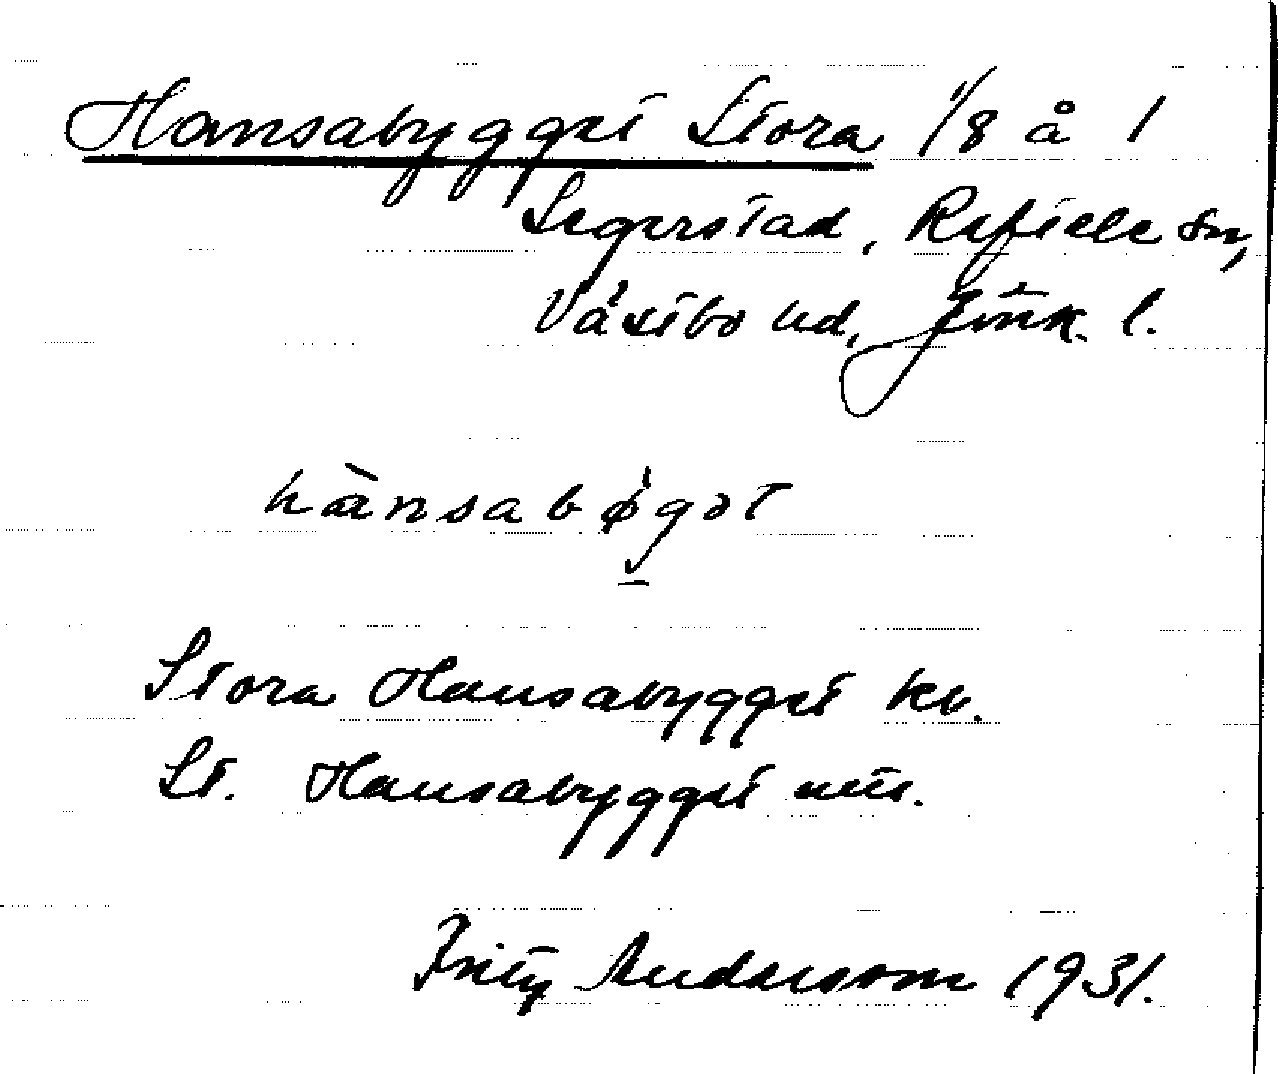 Hansabygget Stora 1/8 å 1
Segerstad, Reftele sn,
Västbo hd, Jönk. l.
hànsabøgət
Stora Hansabygget kv.
St. Hansabygget
Fritz Andersson 1931.